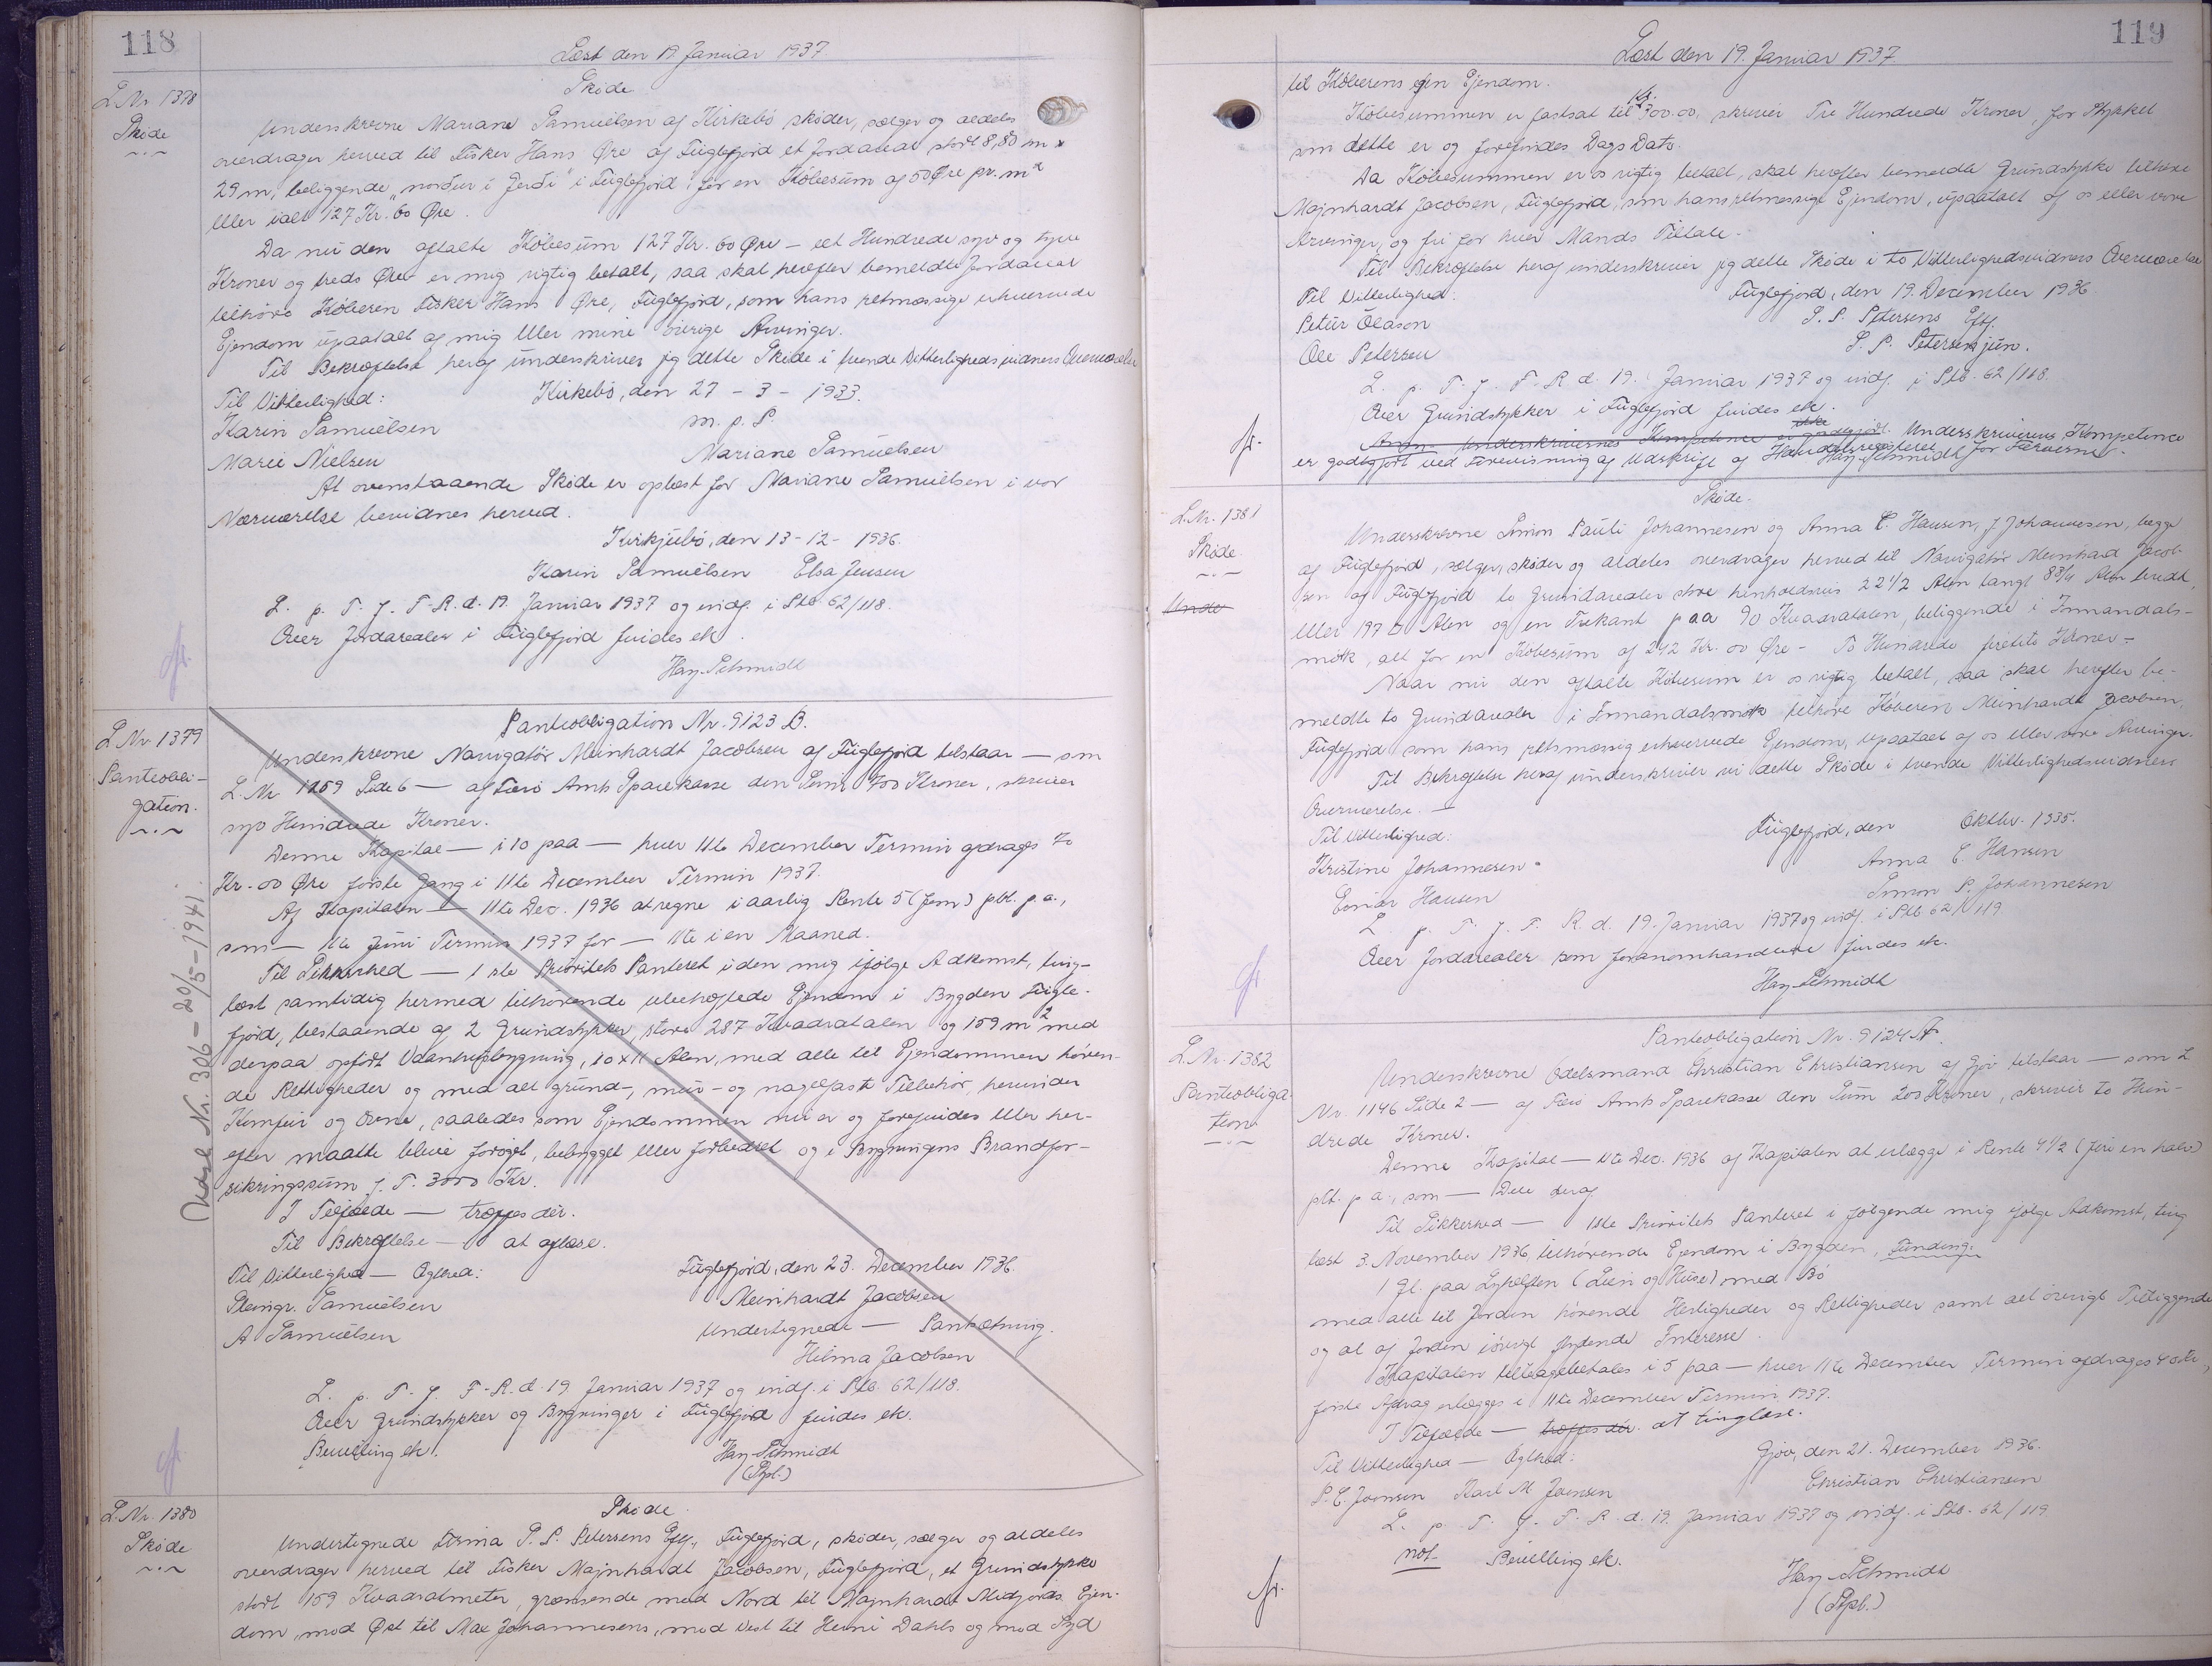 118
Læst den 19 Januar 1937.
L Nr 1378
Skøde
Skøde
Underskrevne Mariane Samuelsen af Kirkebø skøder, sælger og aldeles
overdrager herved til Fisker Hans Øre af Fuglefjord et Jordareal stort 8,80 m x
29 m, beliggende "norður í Gerði" i Fuglefjord for en Købesum af 50 Øre pr. m²
eller ialt 127 Kr. 60 Øre.
Da nu den aftalte Købesum 127 Kr. 60 Øre - et Hundrede syv og tyve
Kroner og treds Øre er mig rigtig betalt, saa skal herefter bemeldte Jordareal
tilhøre Køberen Fisker Hans Øre, Fuglefjord, som hans retmæssige erhvervede
Ejendom upaatalt af mig eller mine øvrige Arvinger.
Til Bekræftelse heraf underskriver jeg dette Skøde i tvende Vitterlighedsvidners Overværelse
Til Vitterlighed: Kirkebø, den 27 - 3 - 1933.
Karin Samuelsen m. p. S.
Marie Nielsen Mariane Samuelsen
At ovenstaaende Skøde er oplæst for Mariane Samuelsen i vor
Nærværelse bevidnes herved.
Kirkjubø, den 13 - 12 - 1936.
Karin Samuelsen Elsa Jensen
L. p. T. f. F. R. d. 19. Januar 1937 og indf. i Skb. 62/118.
Over Jordarealer i Fuglefjord findes ek.
Hay-Schmidt
L Nr 1379
Panteobli-
gation.
Udsl. Nr. 306 - 20/5 - 1941.
Panteobligation Nr. 9123 B.
Underskrevne Navigatør Meinhardt Jacobsen af Fuglefjord tilstaar — som
L. Nr 1259 Side 6 — af Færø Amts Sparekasse den Sum 700 Kroner, skriver
syv Hundrede Kroner.
Denne Kapital — i 10 paa — hver 11te December Termin afdrages 70
Kr. 00 Øre første Gang i 11te December Termin 1937.
Af Kapitalen — 11te Dec. 1936 at regne i aarlig Rente 5 (fem) pCt. p. a.,
som — 11te Juni Termin 1937 for — 11te i en Maaned.
Til Sikkerhed — 1ste Prioritets Panteret i den mig ifølge Adkomst, ting-
læst samtidig hermed tilhørende ubehæftede Ejendom i Bygden Fugle-
fjord, bestaaende af 2 Grundstykker, store 287 Kvadratalen og 159 m² med
derpaa opført Vaaningsbygning, 10 x 11 Alen, med alle til Ejendommen høren-
de Rettigheder og med alt grund-, mur- og nagelfast Tilbehør, herunder
Komfur og Ovne, saaledes som Ejendommen nu er og forefindes eller her-
efter maatte blive forøget, bebygget eller forbedret og i Bygningens Brandfor-
sikringssum f. T. 3000 Kr.
I Tilfælde — træffes dér.
Til Bekræftelse — at aflæse.
Til Vitterlighed — Ægthed: Fuglefjord, den 23. December 1936.
Steingr. Samuelsen Meinhardt Jacobsen
A Samuelsen Undertegnede — Pantsætning.
Hilma Jacobsen
L. p. T. f. F. R. d. 19. Januar 1937 og indf. i Skb. 62/118.
Over Grundstykker og Bygninger i Fuglefjord findes ek.
Bevilling ek. Hay-Schmidt
(Spl.)
L. Nr. 1380
Skøde
Skøde.
Undertegnede Firma S. P. Petersens Eftf., Fuglefjord, skøder, sælger og aldeles
overdrager herved til Fisker Majnhardt Jacobsen, Fuglefjord, et Grundstykke
stort 159 Kvadratmeter, grænsende mod Nord til Majnhardt Midjords Ejen-
dom, mod Øst til Max Johannesens, mod Vest til Heini Dahls og mod Syd
119
Læst den 19. Januar 1937
til Køberens egen Ejendom.
Købesummen er fastsat til Kr. 300.00, skriver Tre Hundrede Kroner, for Stykket
som dette er og forefindes Dags Dato.
Da Købesummen er os rigtig betalt, skal herefter bemeldte Grundstykke tilhøre
Majnhardt Jacobsen, Fuglefjord, som hans retmæssige Ejendom, upaatalt af os eller vore
Arvinger, og fri for hver Mands Tiltale.
Til Bekræftelse heraf underskriver jeg dette Skøde i to Vitterlighedsvidners Overværelse
Til Vitterlighed: Fuglefjord, den 19. December 1936.
Petur Olason S. P. Petersens Eftf.
Ole Petersen S. P. Petersen jun.
L. p. T. f. F. R. d. 19. Januar 1937 og indf. i Skb. 62/118.
Over Grundstykker i Fuglefjord findes ek.
Anm. Underskrivernes Kompetence er ikke godtgjort. Underskriverens Kompetence
er godtgjort ved Forevisning af Udskrift af Handelsregisteret for Færøerne.
Hay-Schmidt
L.Nr. 1381
Skøde
Unde
Skøde.
Underskrevne Simon Pauli Johannesen og Anna C. Hansen, f. Johannesen, begge
af Fuglefjord, sælger, skøder og aldeles overdrager herved til Navigatør Meinhard Jacob-
sen af Fuglefjord to Grundarealer store henholdsvis 22 1/2 Alen langt 8 3/4 Alen bredt,
eller 197 □ Alen og en Trekant paa 90 Kvadratalen, beliggende i Innandals-
mørk, alt for en Købesum af 242 Kr. 00 Øre - To Hundrede firetito Kroner -
Naar nu den aftalte Købesum er os rigtig betalt, saa skal herefter be-
meldte to Grundarealer i Innandalsmørk tilhøre Køberen Meinhardt Jacobsen,
Fuglefjord som hans retsmæssig erhvervede Ejendom, upaatalt af os eller vore Arvinger.
Til Bekræftelse heraf underskriver vi dette Skøde i tvende Vitterlighedsvidners
Overværelse. —
Til Vitterlighed: Fuglefjord, den Oktbr. 1935.
Kristine Johannesen Anna C. Hansen
Einar Hansen Simon P. Johannesen
L. p. T. f. F. R. d. 19. Januar 1937 og indf. i Skb. 62/119
Over Jordarealer som foranomhandlede findes ek.
Hay-Schmidt
L. Nr. 1382
Panteobliga-
tion
Panteobligation Nr. 9124 A.
Underskrevne Odelsmand Christian Christiansen af Gjov tilstaar — som L
Nr. 1146 Side 2 — af Færø Amts Sparekasse den Sum 200 Kroner, skriver to Hun-
drede Kroner.
Denne Kapital — 11te Dec. 1936 af Kapitalen at erlægge i Rente 4 1/2 (fire en halv)
pCt. p a., som — Dele deraf.
Til Sikkerhed — 1ste Prioritets Panteret i følgende mig ifølge Adkomst, ting
læst 3. November 1936, tilhørende Ejendom i Bygden, Funding:
1 Gl. paa Lyhelften (Lien og Huse) med Bø
med alle til Jorden hørende Herligheder og Rettigheder samt alt øvrigt Tilliggende
og al af Jorden iøvrigt flydende Interesse.
Kapitalen tilbagebetales i 5 paa — hver 11te December Termin afdrages 40 Kr.,
første Afdrag erlægges i 11te December Termin 1937.
I Tilfælde — træffes dér. at tinglæse.
Til Vitterlighed — Ægthed: Gjov, den 21. December 1936.
P. C. Joensen Karl M. Joensen Christian Christiansen
L. p. T. f. F. R. d. 19. Januar 1937 og indf. i Skb. 62/119
not. Bevilling ek. Hay-Schmidt
(Spl.)